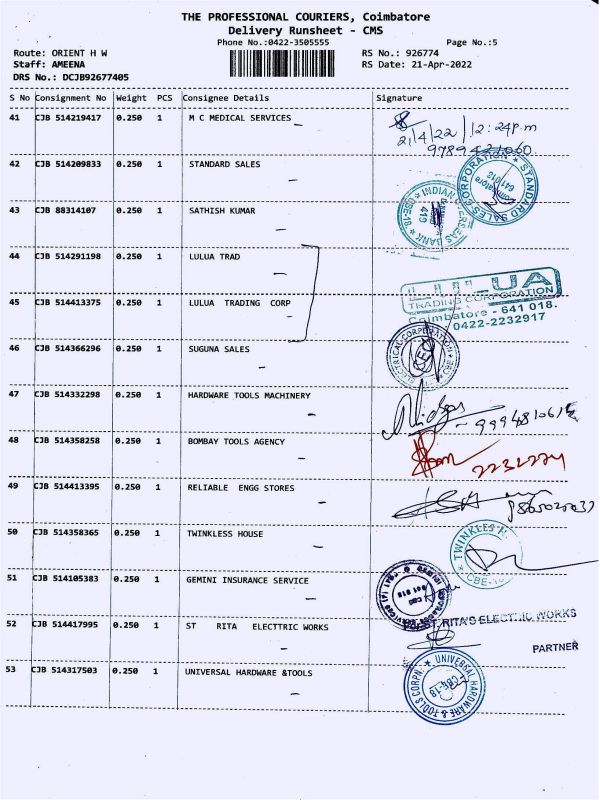 THE PROFESSIONAL COURIERS, Coimbatore
Delivery Runsheet - CMS
Phone No.:0422-3505555 Page No.:5
Route: ORIENT H W RS No.: 926774
Staff: AMEENA RS Date: 21-Apr-2022
DRS No.: DCJB92677405
S No Consignment No Weight PCS Consignee Details Signature
41 CJB 514219417 0.250 1 M C MEDICAL SERVICES
21/4/22 | 12:24p.m
42 CJB 514209833 0.250 1 STANDARD SALES
STANDARD SALES CORPORATION
641 018
43 CJB 88314107 0.250 1 SATHISH KUMAR
INDIAN OVERSEAS BANK * CBE-18 *
419
44 CJB 514291198 0.250 1 LULUA TRAD
LULUA
TRADING CORPORATION
Coimbatore - 641 018.
0422-2232917
45 CJB 514413375 0.250 1 LULUA TRADING CORP
46 CJB 514366296 0.250 1 SUGUNA SALES
ELECTRICAL CORPORATION
47 CJB 514332298 0.250 1 HARDWARE TOOLS MACHINERY
48 CJB 514358258 0.250 1 BOMBAY TOOLS AGENCY
49 CJB 514413395 0.250 1 RELIABLE ENGG STORES
50 CJB 514358365 0.250 1 TWINKLESS HOUSE
51 CJB 514105383 0.250 1 GEMINI INSURANCE SERVICE
52 CJB 514417995 0.250 1 ST RITA ELECTTRIC WORKS
ST. RITA'S ELECTRIC WORKS
PARTNER
53 CJB 514317503 0.250 1 UNIVERSAL HARDWARE &TOOLS
UNIVERSAL HARDWARE & TOOLS CORPN.
CBE-18